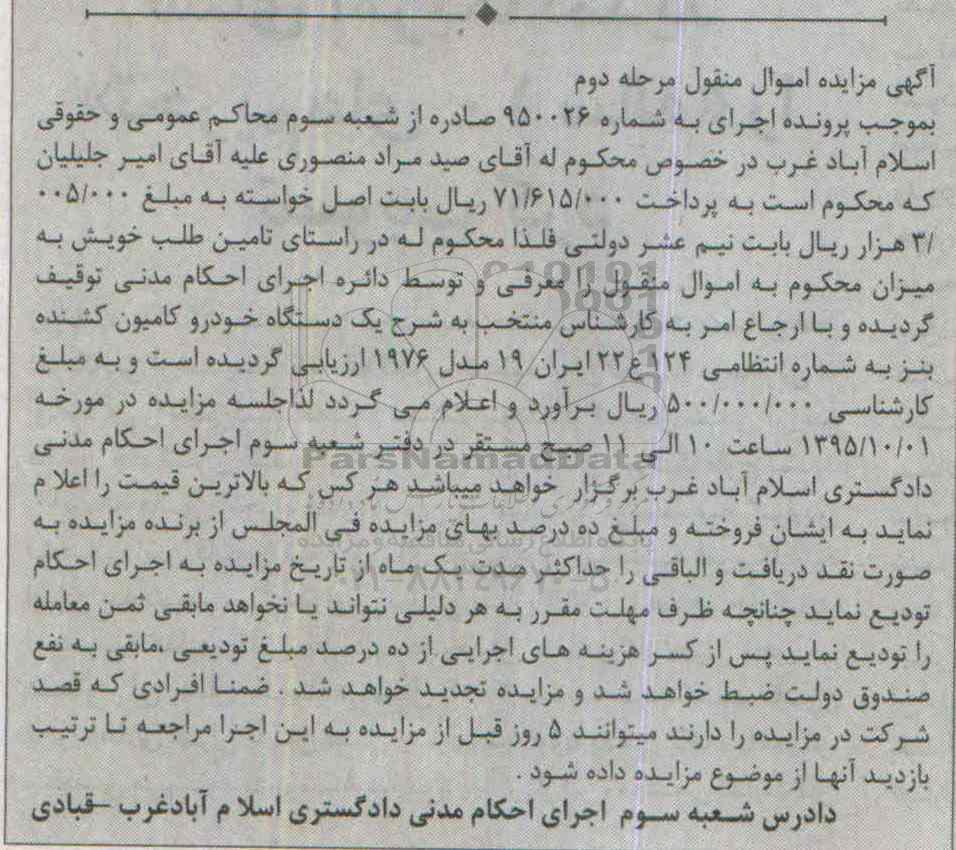 آگهی مزایده اموال منقول مرحله دوم
بموجب پرونده اجرای به شماره ۹۵۰۰۲۶ صادره از شعبه سوم محاکم عمومی و حقوقی
اسلام آباد غرب در خصوص محکوم له آقای صید مراد منصوری علیه آقای امیر جلیلیان
که محکوم است به پرداخت ۷۱/۶۱۵/۰۰۰ ریال بابت اصل خواسته به مبلغ ۰۰۵/۰۰۰
/۳ هزار ریال بابت نیم عشر دولتی فلذا محکوم له در راستای تامین طلب خویش به
میزان محکوم به اموال منقول را معرفی و توسط دائره اجرای احکام مدنی توقیف
گردیده و با ارجاع امر به کارشناس منتخب به شرح یک دستگاه خودرو کامیون کشنده
بنز به شماره انتظامی ۱۲۴ع۲۲ ایران ۱۹ مدل ۱۹۷۶ ارزیابی گردیده است و به مبلغ
کارشناسی ۵۰۰/۰۰۰/۰۰۰ ریال برآورد و اعلام می گردد لذاجلسه مزایده در مورخه
۱۳۹۵/۱۰/۰۱ ساعت ۱۰ الی ۱۱ صبح مستقر در دفتر شعبه سوم اجرای احکام مدنی
ParsNamadData
دادگستری اسلام آباد غرب برگزار خواهد میباشد هر کس که بالاترین قیمت را اعلا م
نماید به ایشان فروخته و مبلغ ده درصد بهای مزایده فی المجلس از برنده مزایده به
صورت نقد دریافت و الباقی را حداکثر مدت یک ماه از تاریخ مزایده به اجرای احکام
تودیع نماید چنانچه ظرف مهلت مقرر به هر دلیلی نتواند یا نخواهد مابقی ثمن معامله
را تودیع نماید پس از کسر هزینه های اجرایی از ده درصد مبلغ تودیعی ،مابقی به نفع
صندوق دولت ضبط خواهد شد و مزایده تجدید خواهد شد . ضمنا افرادی که قصد
شرکت در مزایده را دارند میتوانند ۵ روز قبل از مزایده به این اجرا مراجعه تا ترتیب
بازدید آنها از موضوع مزایده داده شود .
دادرس شعبه سوم اجرای احکام مدنی دادگستری اسلا م آبادغرب –قبادی